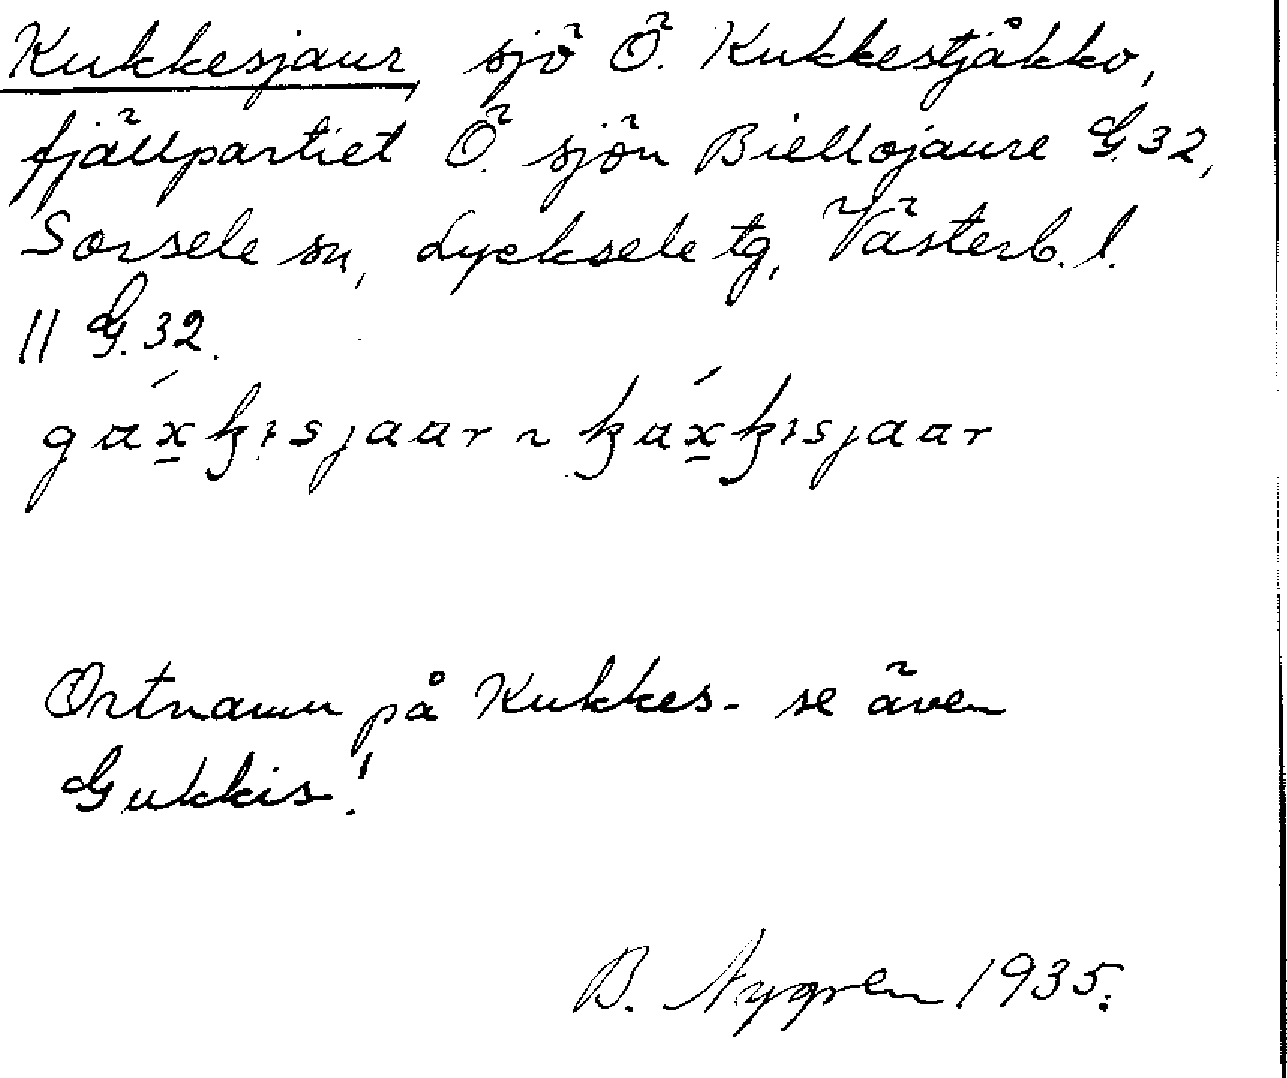 Kukkesjaur, sjö Ö. Kukkestjåkko,
fjällpartiet Ö. sjön Biellojaure G.32,
Sorsele sn, Lycksele tg, Västerb. l.
|| G. 32.
Ortnamn på Kukkes- se även
Gukkis!
B. Nygren 1935.